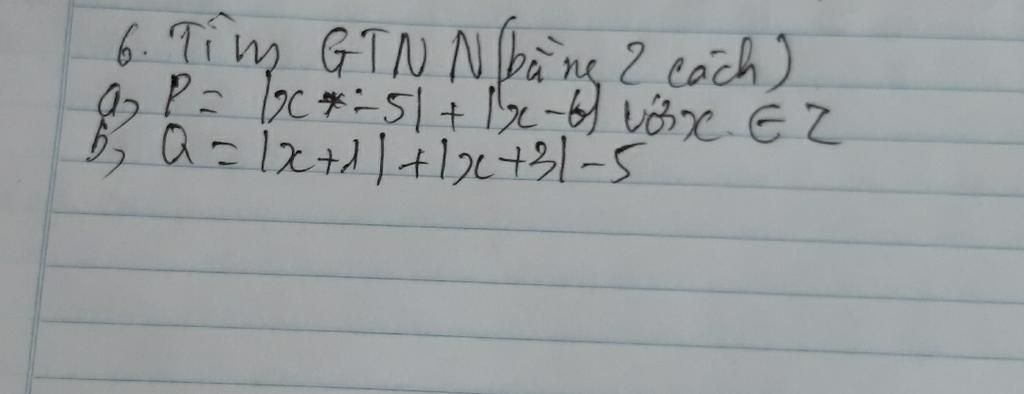 6. Tìm GTNN (bằng 2 cách)
a, P = |x - 5| + |x - 6| với x ∈ Z
b, Q = |x + 1| + |x + 3| - 5